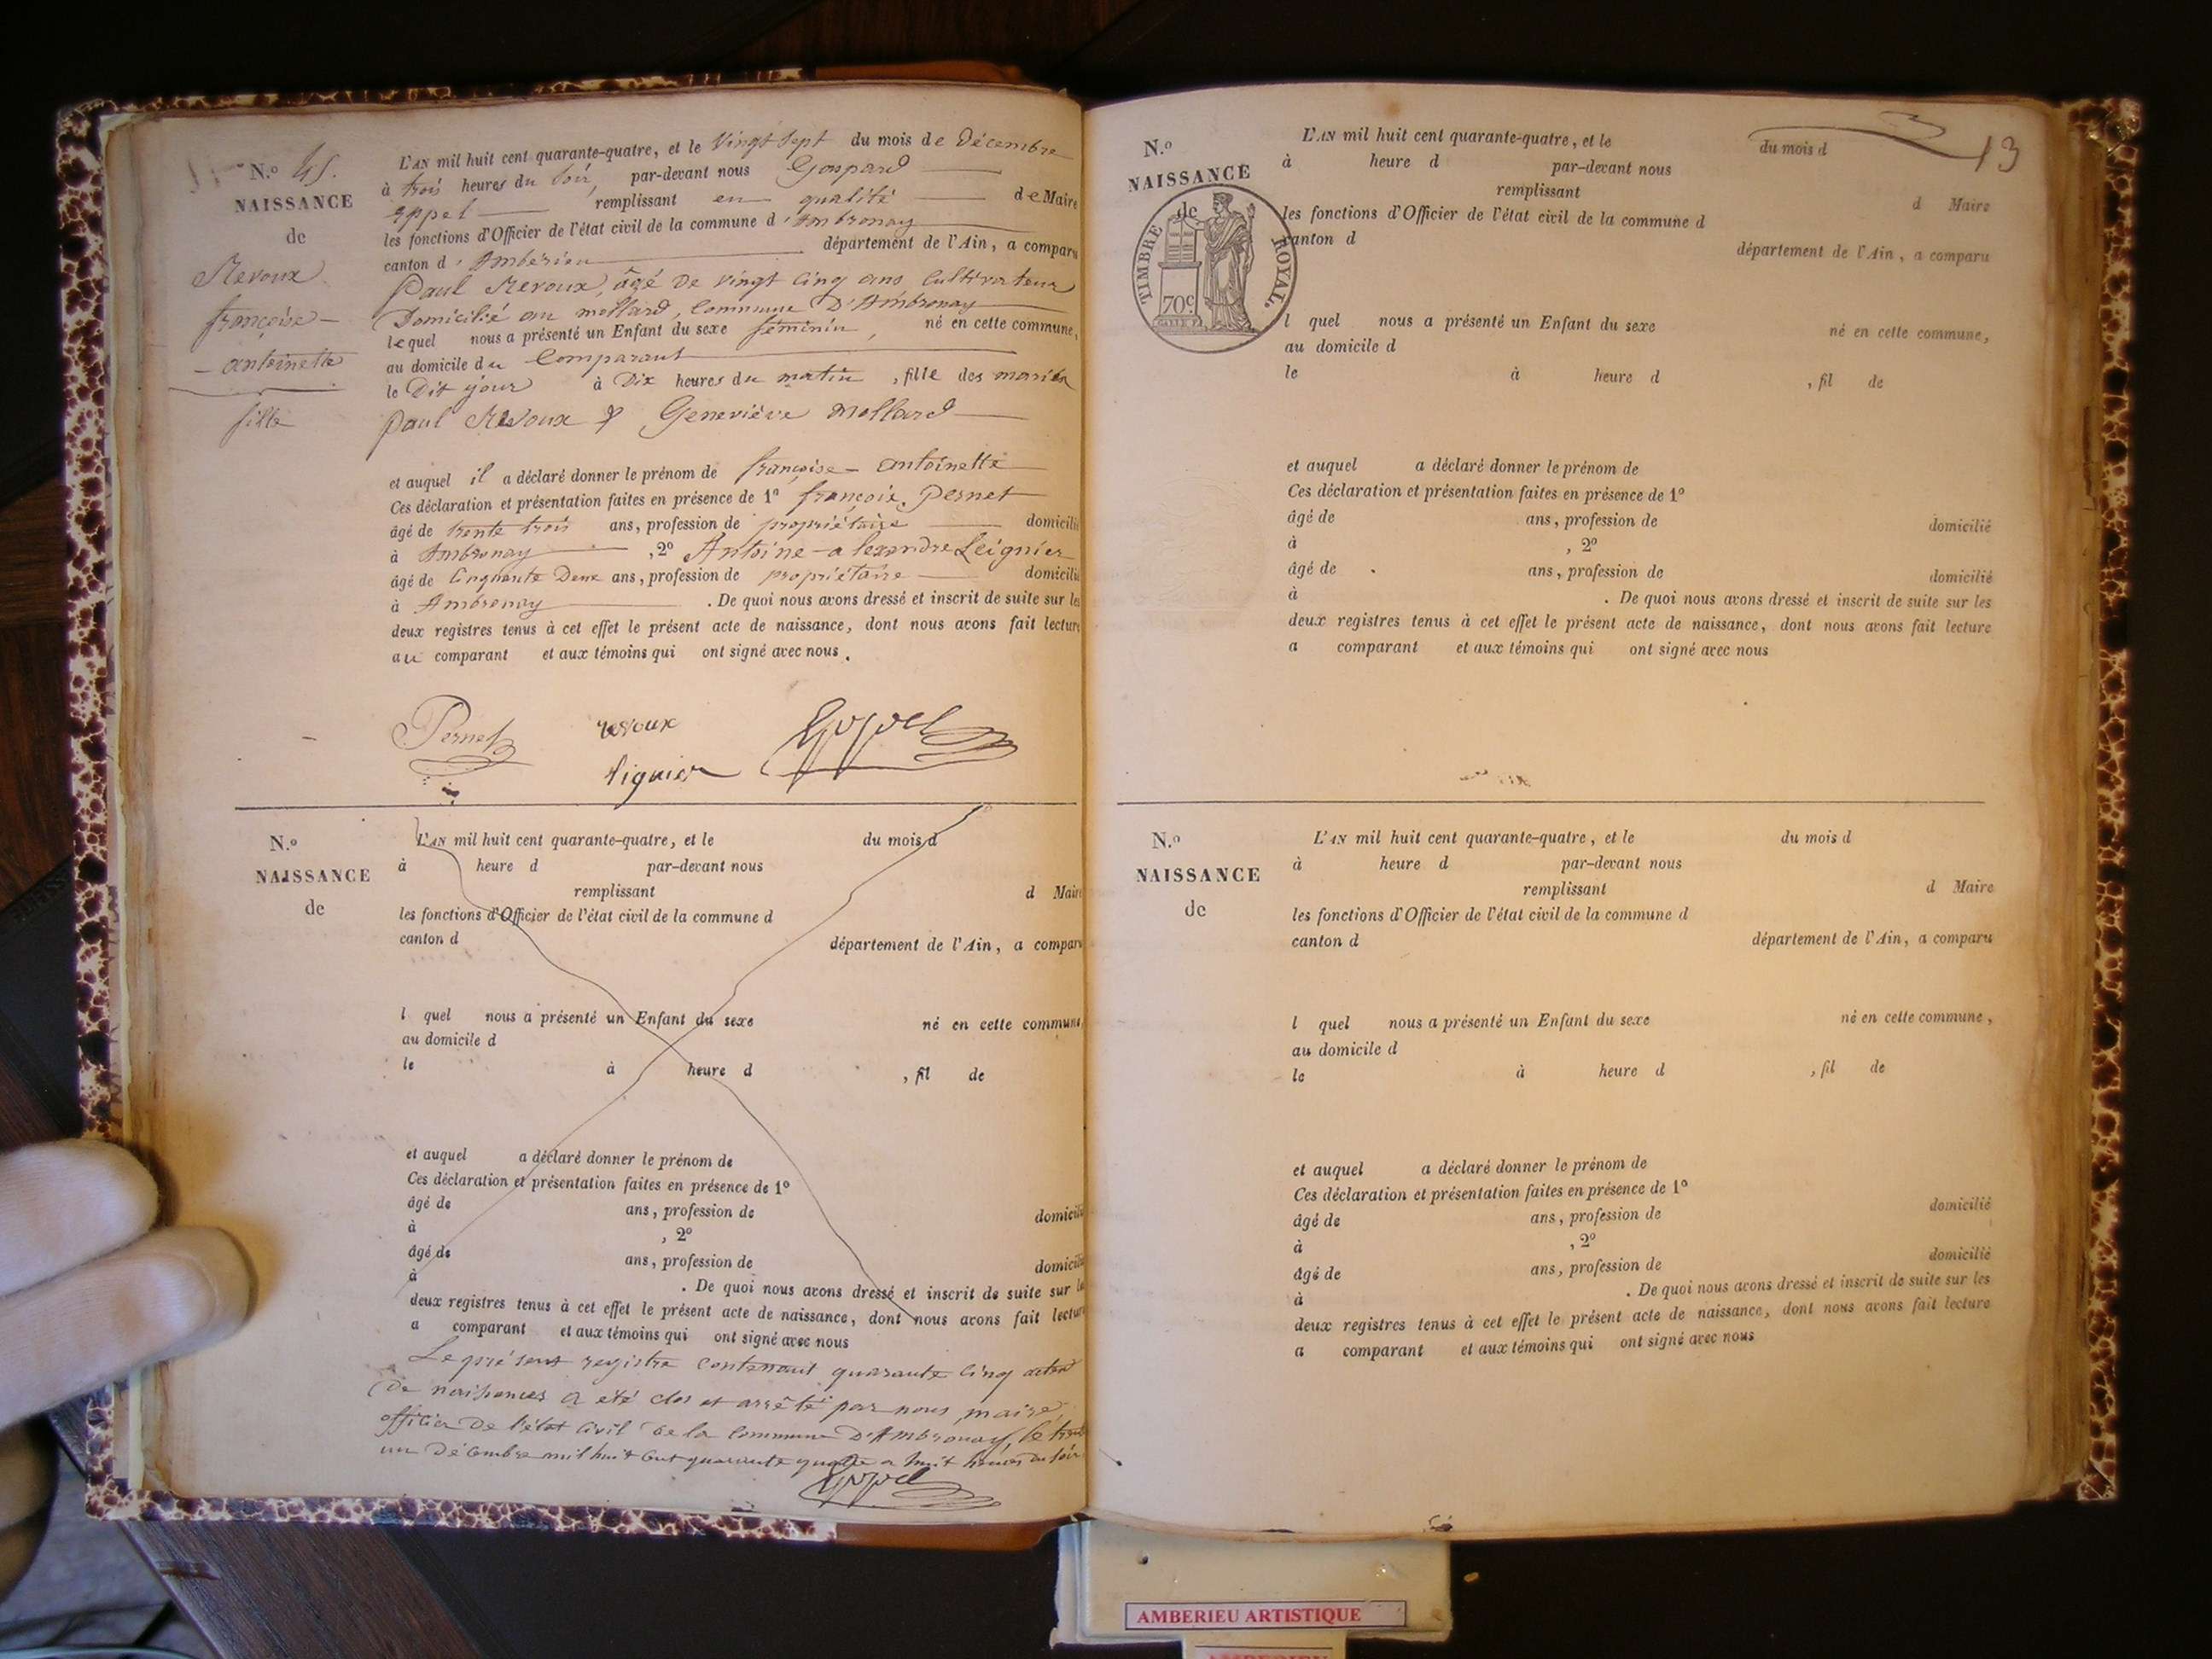 N.º 45.
NAISSANCE
de
Revoux
françoise-
-antoinette
fille
L'AN mil huit cent quarante-quatre, et le Vingt sept du mois de Décembre
à trois heures du soir, par-devant nous Gaspard
Goppel remplissant en qualité de Maire
les fonctions d'Officier de l'état civil de la commune d'Ambronay
canton d'Amberieu département de l'Ain, a comparu
Paul Revoux, âgé de vingt cinq ans cultivateur
Domicilié au mollard, commune D'Ambronay
lequel nous a présenté un Enfant du sexe féminin, né en cette commune,
au domicile du Comparant
le Dit jour à Dix heures du matin, fille des mariés
paul Revoux & Geneviève mollard
et auquel il a déclaré donner le prénom de françoise-antoinette
Ces déclaration et présentation faites en présence de 1º françois Pernet
âgé de trente trois ans, profession de propriétaire domicilié
à Ambronay , 2º Antoine-alexandre Leignier
âgé de Cinquante Deux ans, profession de propriétaire domicilié
à Ambronay . De quoi nous avons dressé et inscrit de suite sur les
deux registres tenus à cet effet le présent acte de naissance, dont nous avons fait lecture
au comparant et aux témoins qui ont signé avec nous.
Pernet revoux
liguier
N.º
NAISSANCE
de
L'AN mil huit cent quarante-quatre, et le du mois d
à heure d par-devant nous
remplissant d Maire
les fonctions d'Officier de l'état civil de la commune d
canton d département de l'Ain, a comparu
l quel nous a présenté un Enfant du sexe né en cette commune
au domicile d
le à heure d , fil de
et auquel a déclaré donner le prénom de
Ces déclaration et présentation faites en présence de 1º
âgé de ans, profession de domicilié
à , 2º
âgé de ans, profession de domicilié
à . De quoi nous avons dressé et inscrit de suite sur les
deux registres tenus à cet effet le présent acte de naissance, dont nous avons fait lecture
a comparant et aux témoins qui ont signé avec nous
Le présent registre contenant quarante cinq actes
de naissances a été clos et arrêté par nous, maire,
officier de l'état civil de la commune D'Ambronay, le trente
un Décembre mil huit cent quarante quatre a huit heures du soir
13
N.º
NAISSANCE
de
TIMBRE ROYAL.
70 c
L'AN mil huit cent quarante-quatre, et le du mois d
à heure d par-devant nous
remplissant d Maire
les fonctions d'Officier de l'état civil de la commune d
canton d département de l'Ain, a comparu
l quel nous a présenté un Enfant du sexe né en cette commune,
au domicile d
le à heure d , fil de
et auquel a déclaré donner le prénom de
Ces déclaration et présentation faites en présence de 1º
âgé de ans, profession de domicilié
à , 2º
âgé de ans, profession de domicilié
à . De quoi nous avons dressé et inscrit de suite sur les
deux registres tenus à cet effet le présent acte de naissance, dont nous avons fait lecture
a comparant et aux témoins qui ont signé avec nous
N.º
NAISSANCE
de
L'AN mil huit cent quarante-quatre, et le du mois d
à heure d par-devant nous
remplissant d Maire
les fonctions d'Officier de l'état civil de la commune d
canton d département de l'Ain, a comparu
l quel nous a présenté un Enfant du sexe né en cette commune,
au domicile d
le à heure d , fil de
et auquel a déclaré donner le prénom de
Ces déclaration et présentation faites en présence de 1º
âgé de ans, profession de domicilié
à , 2º
âgé de ans, profession de domicilié
à . De quoi nous avons dressé et inscrit de suite sur les
deux registres tenus à cet effet le présent acte de naissance, dont nous avons fait lecture
a comparant et aux témoins qui ont signé avec nous
AMBERIEU ARTISTIQUE